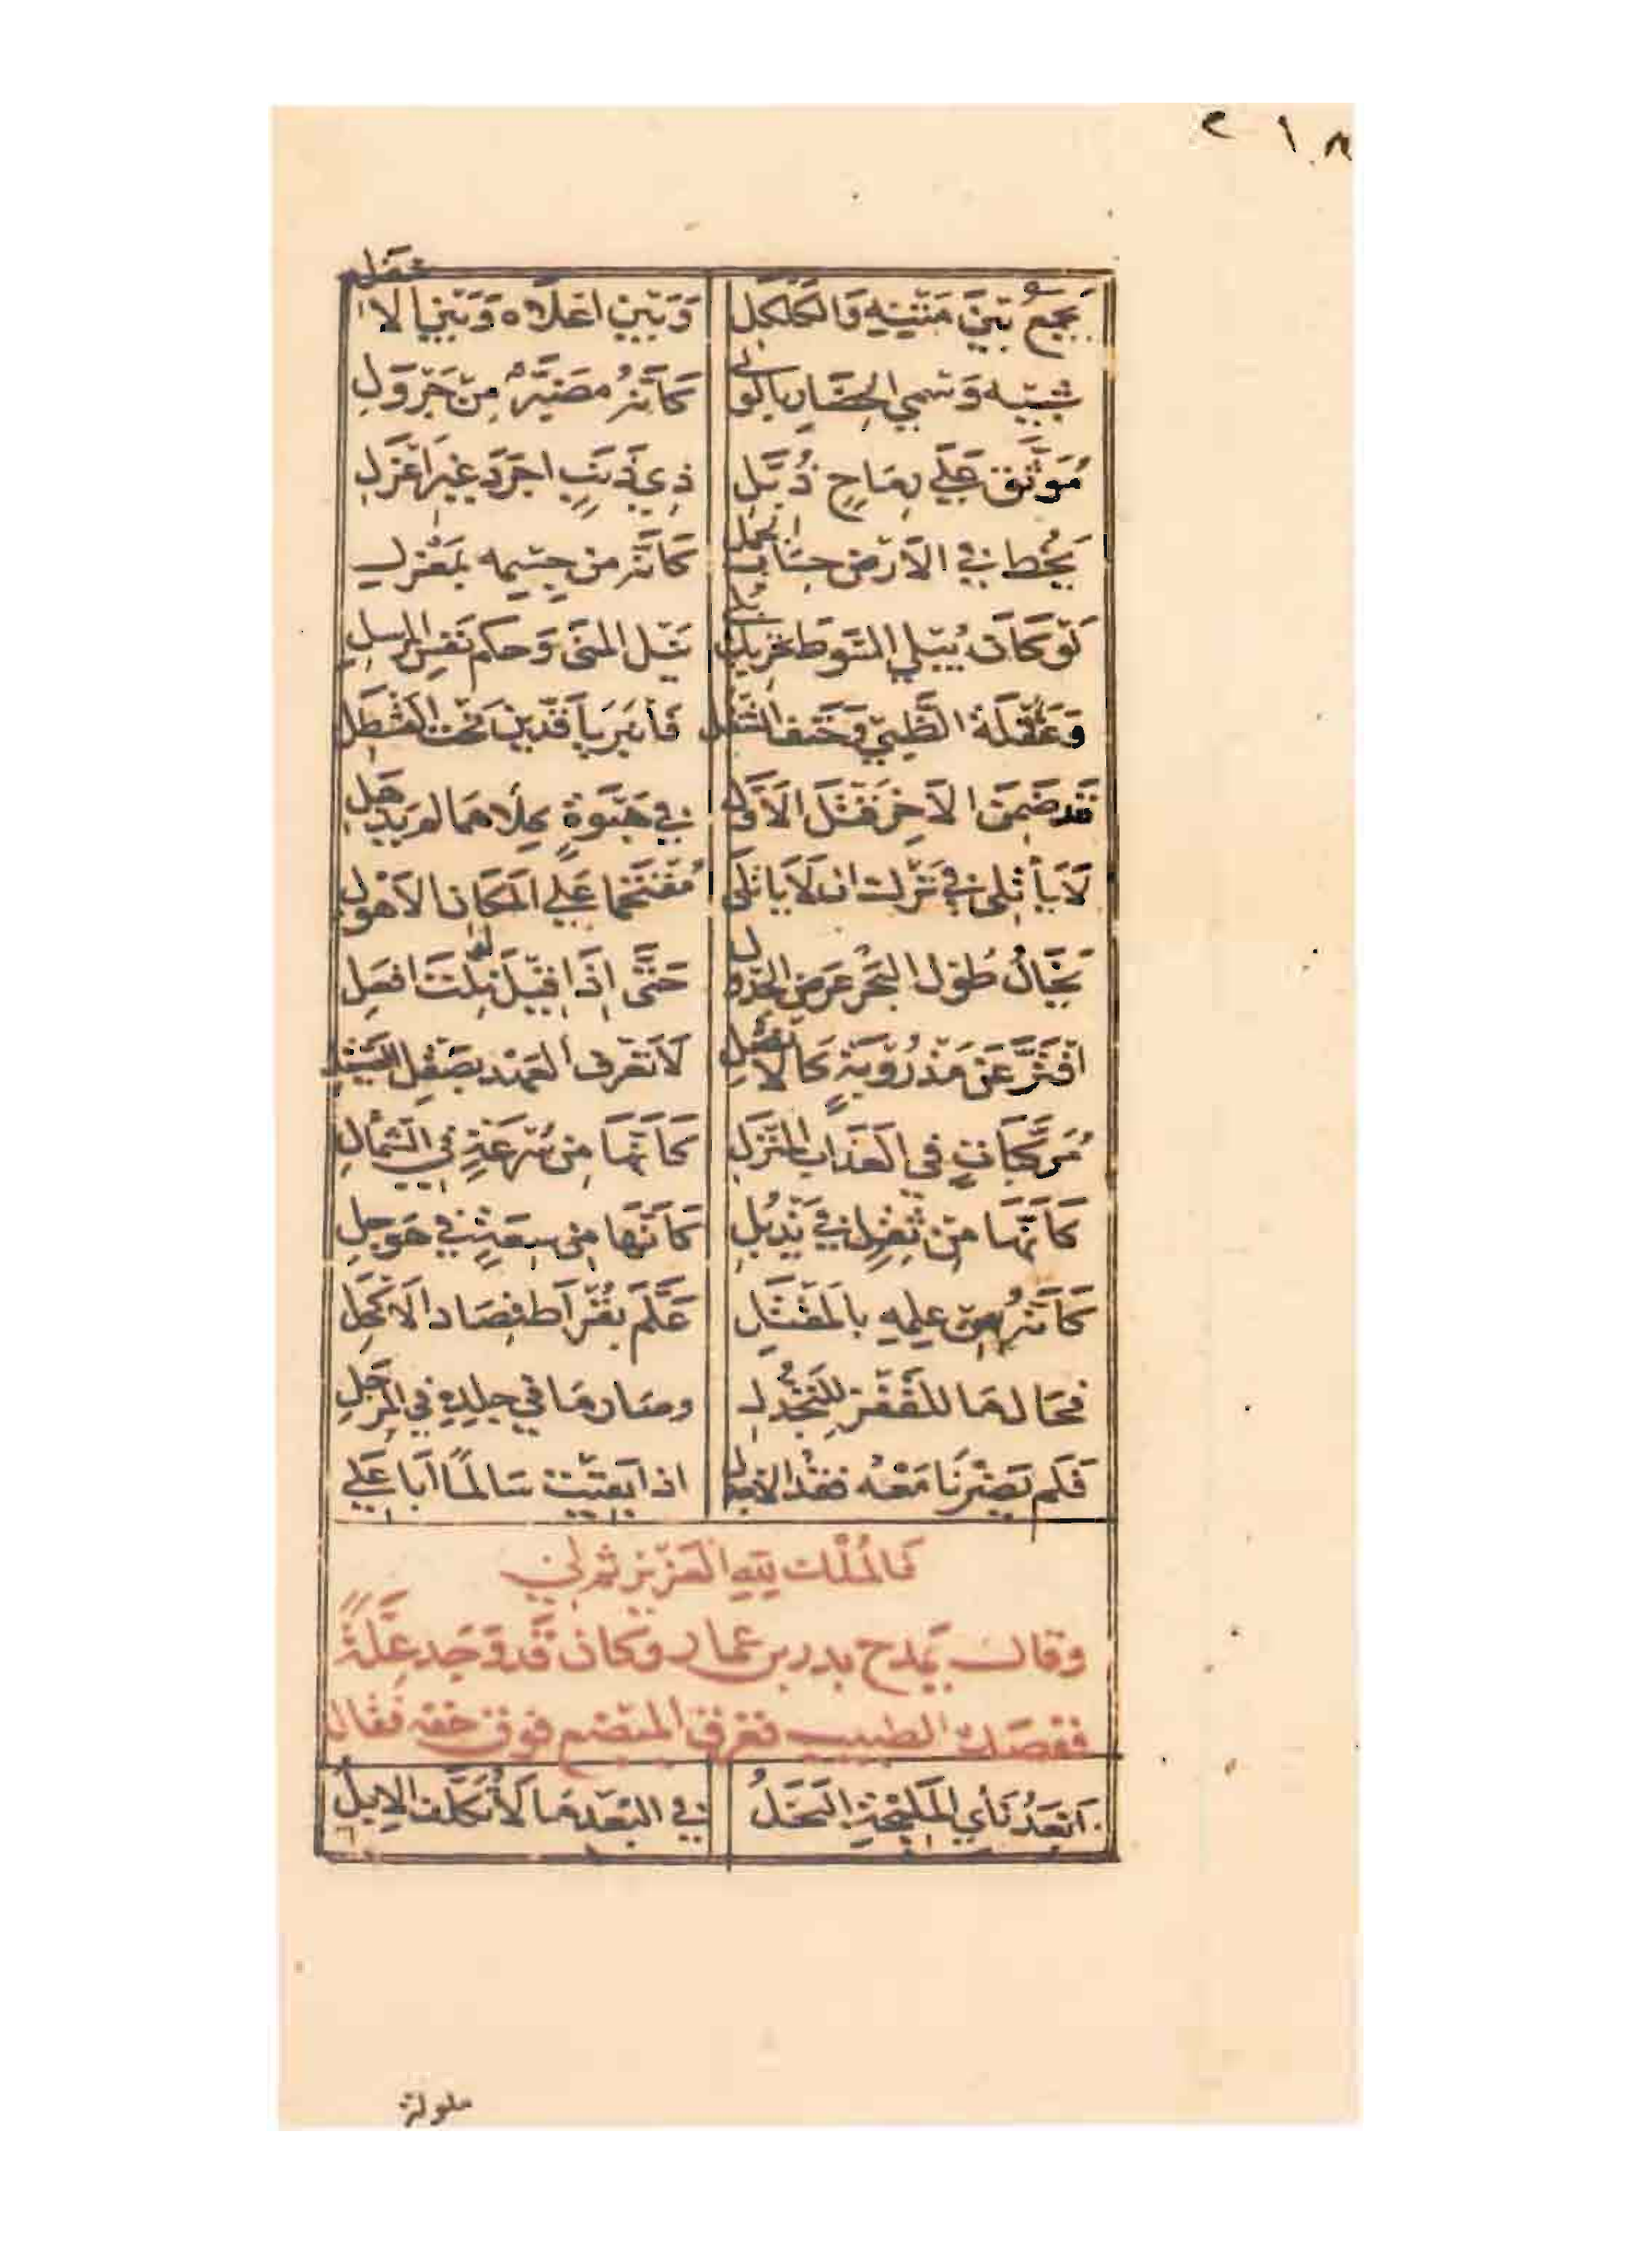 ٢١٨
يجمع بين متنيه والكلكل وبين اعلاه وبين الاسفل
شبيه وسمي الحضار بالولي كأنه مضبر من جرول
موثق على رماح ذبل ذي ذنب اجرد غير اعزل
يخط في الارض حساب الجمل كأنه من جسمه بمعزل
لو كان يبلي السوط تحريك بلي نيل المنى وحكم نفس المرسل
وعقلة الظبي وحتف التتفل فانبريا فذين تحت القسطل
قد ضمن الآخر قتل الاول في هبوة كلاهما لم يذهل
لا يأتلي في ترك ان لا يأتلي مقتحما على المكان الاهول
يخال طول البحر عرض الجدول حتى اذا قيل له نلت افعل
افتر عن مذروبة كالانصل لا تعرف العهد بصقل الصيقل
مركبات في العذاب المنزل كأنها من سرعة في الشمأل
كأنها من ثقل في يذبل كأنها من سعة في هوجل
كأنه من علمه بالمقتل علم بقراط فصاد الاكحل
فحال ما للقفز للتجدل وصار ما في جلده في المرجل
فلم يضرنا معه فقد الاجدل اذا بقيت سالما ابا علي
فالملك لله العزيز ثم لي
وقال يمدح بدر بن عمار وكان قد وجد علة
ففصده الطبيب فغرق المبضع فوق حقه فقال
ابعد نأي المليحة البخل في البعد ما لا تكلف الابل
ملولة